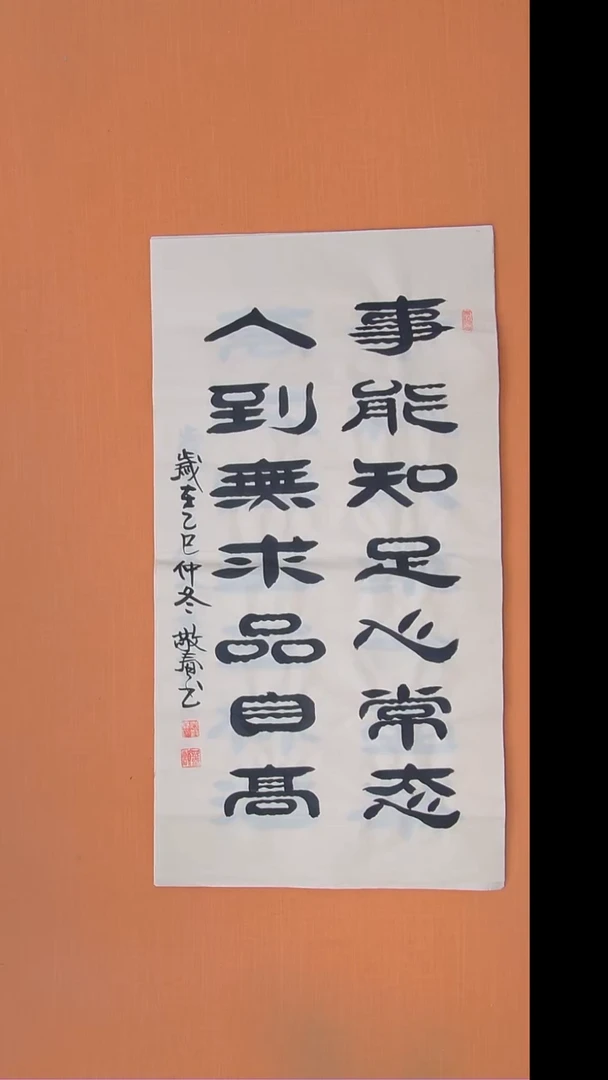 事能知足心常态
人到無求品自高
歲在乙巳仲冬 敬春书